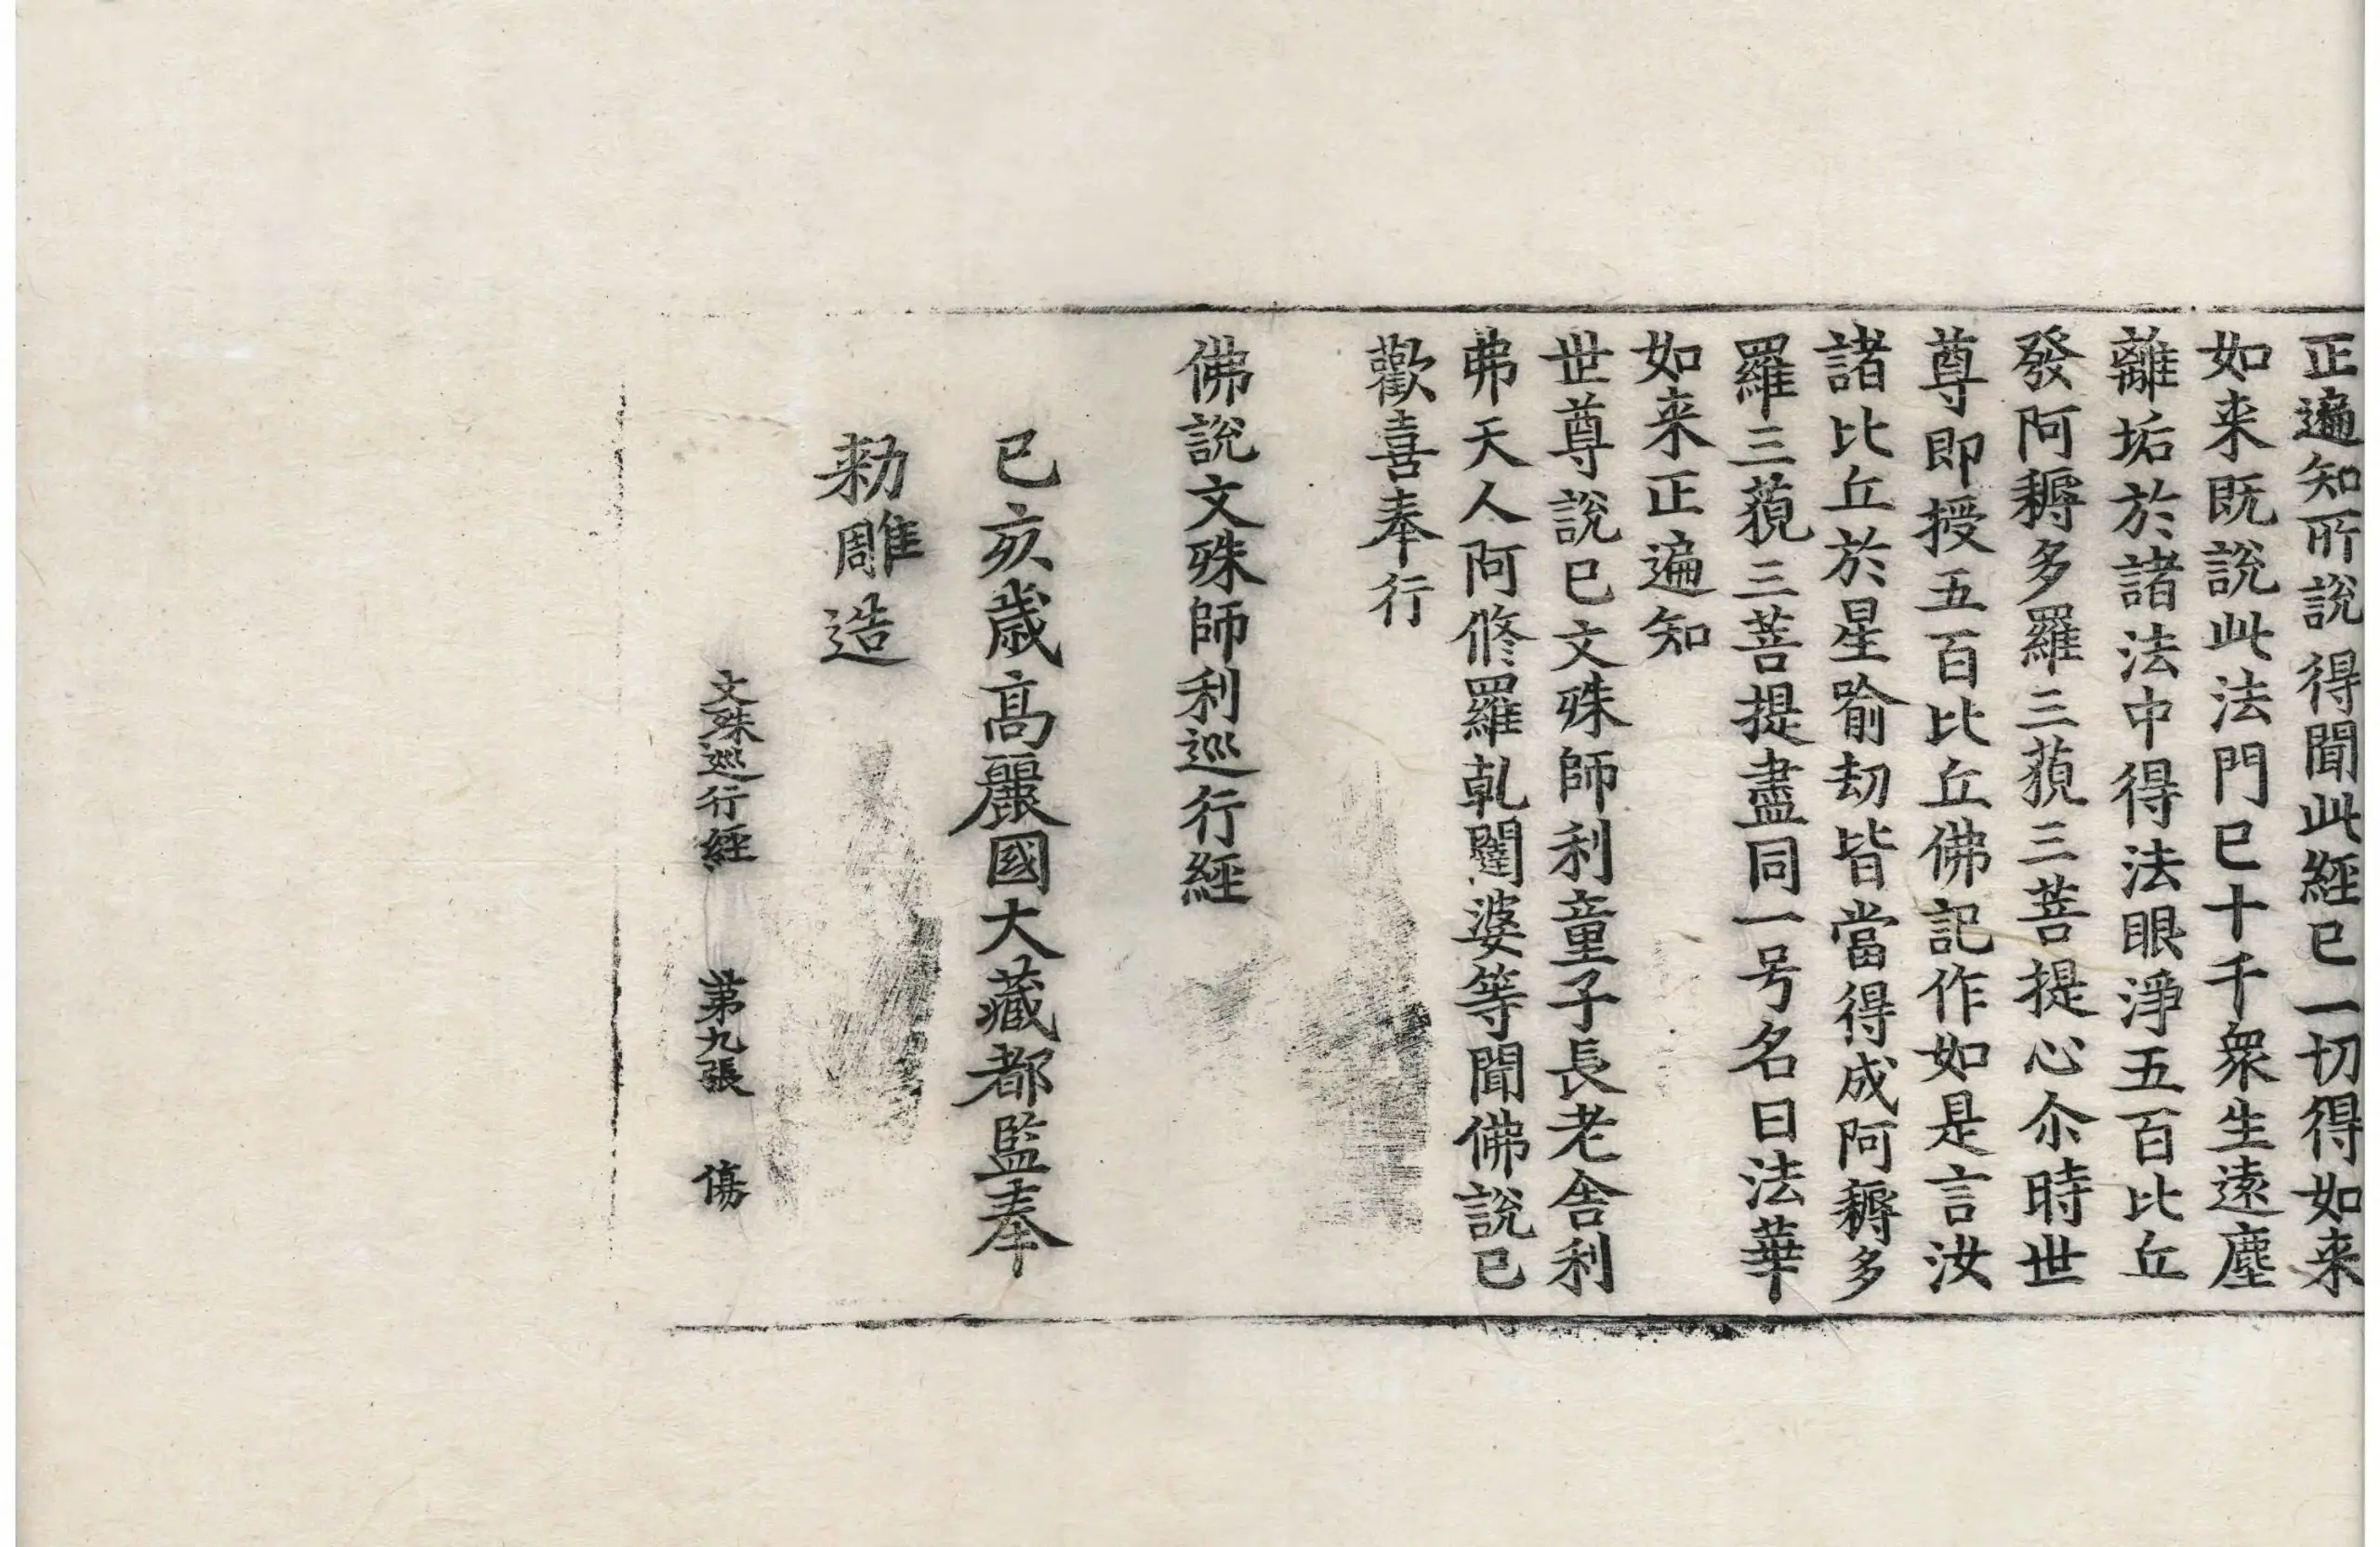 正遍知所說得聞此經已一切得如来
如来既說此法門已十千衆生遠塵
離垢於諸法中得法眼淨五百比丘
發阿耨多羅三藐三菩提心尒時世
尊即授五百比丘佛記作如是言汝
諸比丘於星喻劫皆當得成阿耨多
羅三藐三菩提盡同一号名曰法華
如来正遍知
世尊說已文殊師利童子長老舍利
弗天人阿脩羅乹闥婆等聞佛說已
歡喜奉行
佛說文殊師利巡行經
己亥歲高麗國大藏都監奉
勑雕造
文殊巡行經 第九張 傷